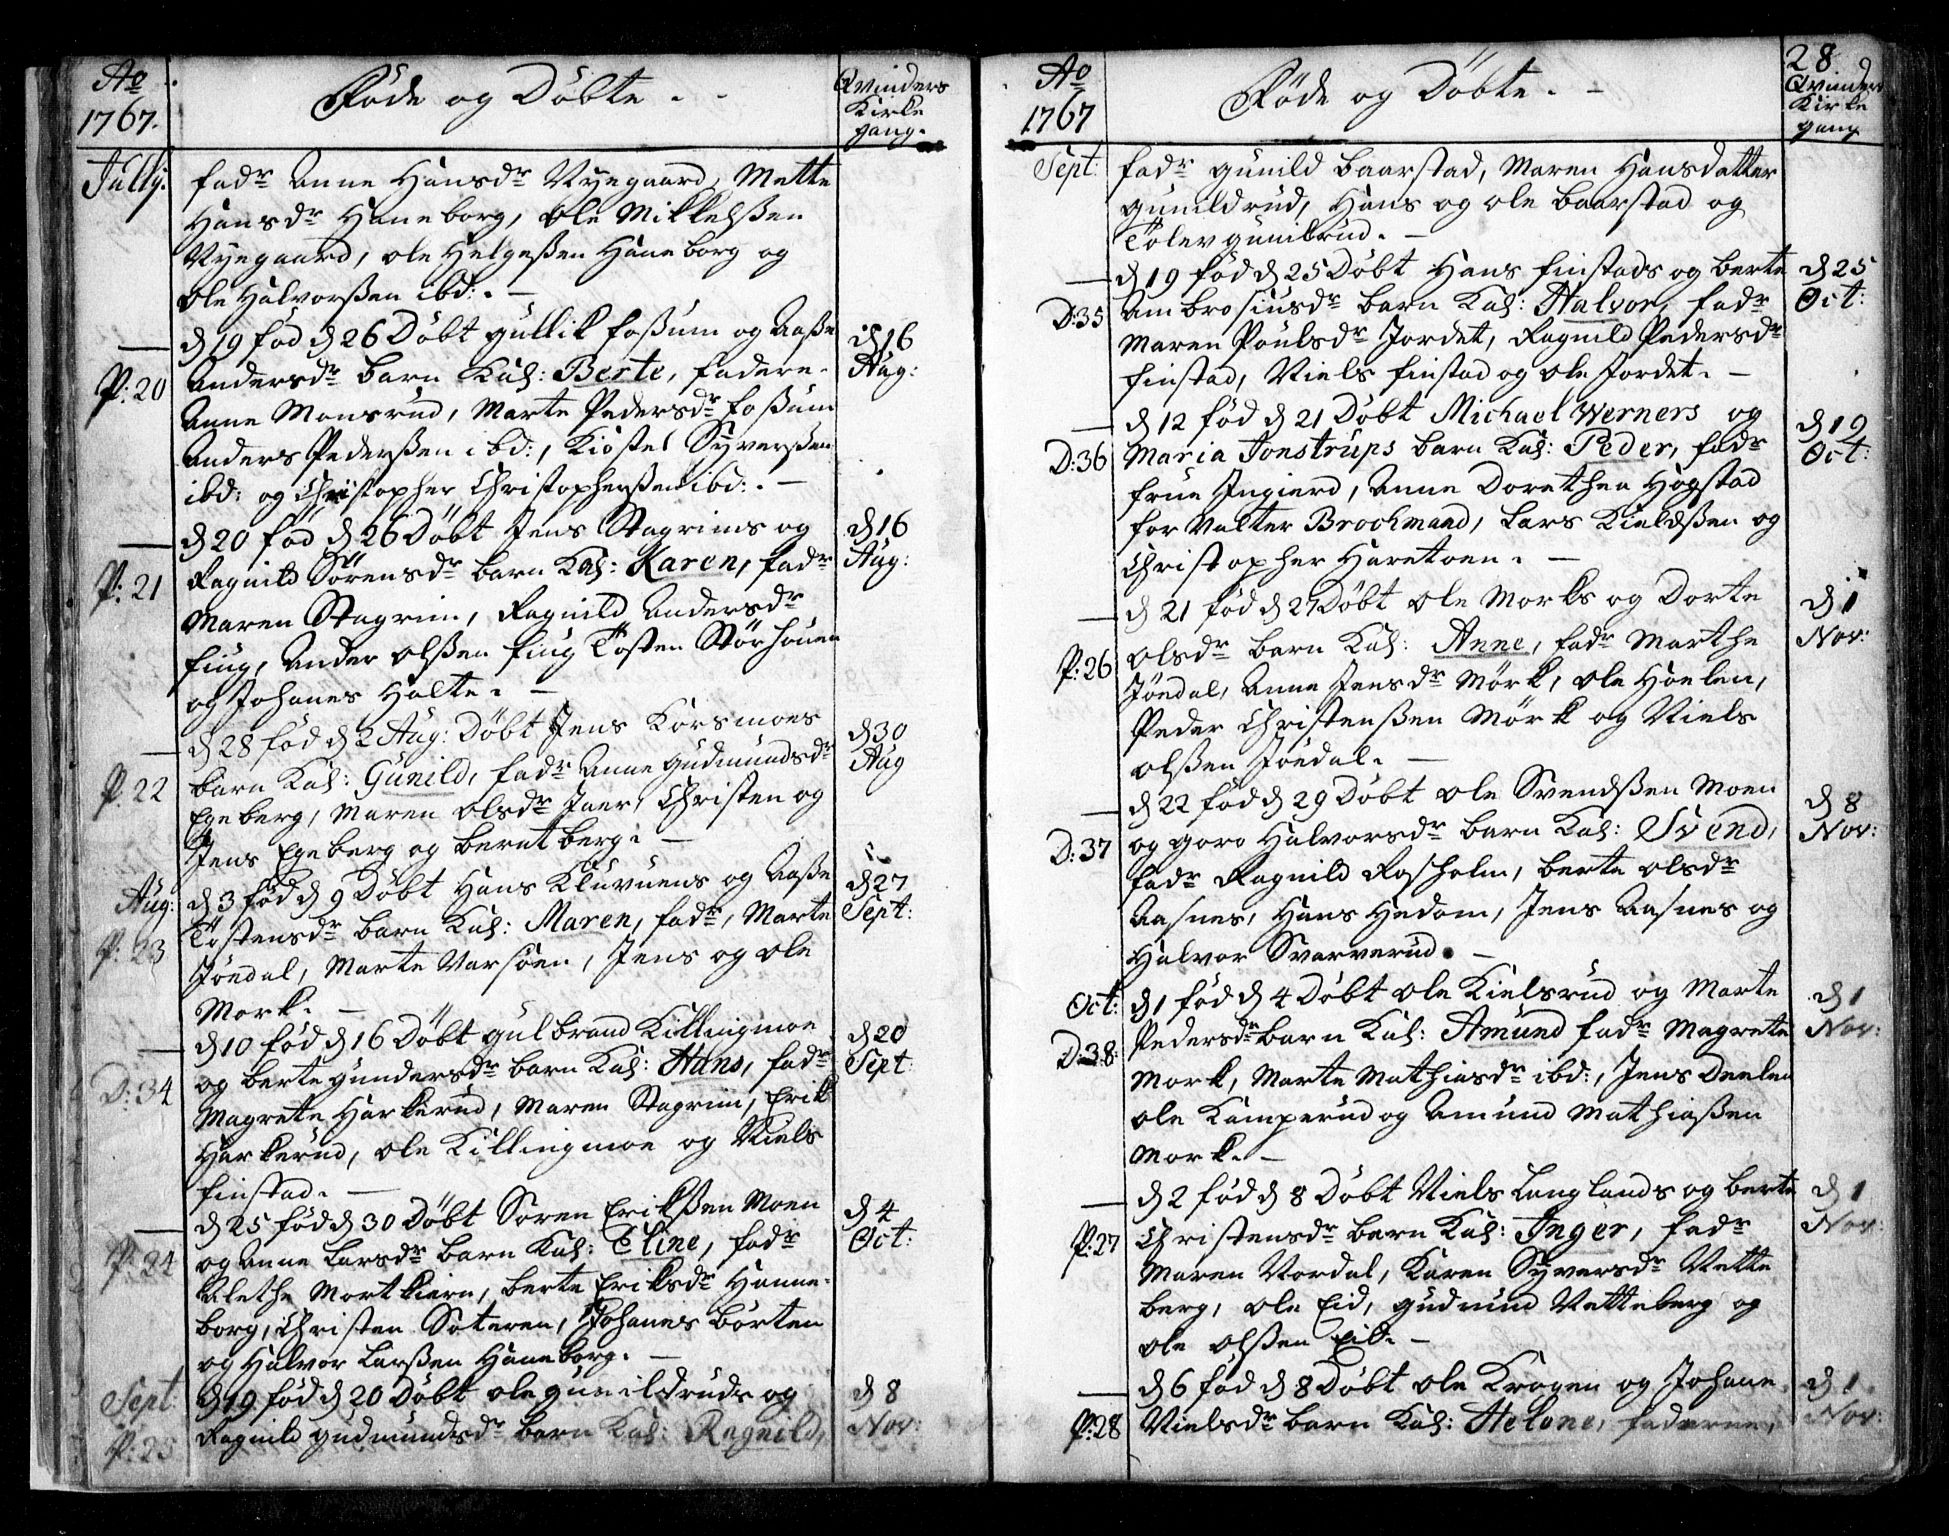 Ao
1767.
Föde og Döbte.
Qvinders
Kirke
gang.
Jully.
fadr Anne Hansdr Nyegaard, Mette
Hansdr Haneborg, Ole Mikkelßen
Nyegaard, Ole Helgeßen Haneborg og
Ole Halvorßen ibd:. —
— d 19 föd d 26 Döbt Gullik Foßum og Aaße
P: 20 Andersdr barn Kal: Berte, fadere
Anne Monsrud, Marte Pedersdr Foßum
Anders Pederßen ibd:, Kiöstel Syverßen
ibd: og Christopher Christopherßen ibd:. —
d 16
Aug:
— d 20 föd d 26 Döbt Jens Stagrims og
P: 21 Ragnild Sörensdr barn Kal: Karen, fadr
Maren Stagrim, Ragnild Andersdr
Fiug, Ander Olßen Fiug Tosten Störhouen
og Johanes Holte. —
d 16
Aug:
— d 28 föd d 2 Aug: Döbt Jens Korsmoes
P: 22 barn Kal: Gunild, fadr Anne Gudmundsdr
Egeberg, Maren Olsdr Jaer, Christen og
Jens Egeberg og Bernt Berg. —
d 30
Aug
Aug: d 3 föd d 9 Döbt Hans Kluvuens og Aaße
P: 23 Tostensdr barn Kal: Maren, fadr, Marte
Jöedal, Marte Varsöen, Jens og Ole
Mork. —
d 27
Sept:
— d 10 föd d 16 Döbt Gulbrand Killingmoe
D: 34 og Berte Gundersdr barn Kal: Hans, fadr
Magrete Harkerud, Maren Stagrim, Erik
Harkerud, Ole Killingmoe og Niels
Finstad. —
d 20
Sept:
— d 25 föd d 30 Döbt Sören Erikßen Moen
P: 24 og Anne Larsdr barn Kal: Eline, fadr
Alethe Mortkiern, Berte Eriksdr Hanne-
borg, Christen Soteren, Johanes Börten
og Halvor Larßen Haneborg. —
d 4
Oct:
Sept d 19 föd d 20 Döbt Ole Gunildruds og
P: 25 Ragnild Gudmundsdr barn Kal: Ragnild,
d 8
Nov:
Ao
1767
Föde og Döbte.
28
Qvinders
Kirke
gang
Sept: fadr Gunild Baarstad, Maren Hansdatter
Gunildrud, Hans og Ole Baarstad og
Tolev Gunildrud. —
— d 19 föd d 25 Döbt Hans Finstads og Berte
D: 35 Ambrosiusdr barn Kal: Halvor, fadr
Maren Poulsdr Jordet, Ragnild Pedersdr
Finstad, Niels Finstad og Ole Jordet. —
d 25
Oct:
— d 12 föd d 21 Döbt Michael Werners og
D: 36 Maria Jonstrups barn Kal: Peder, fadr
Frue Ingierd, Anne Dorethea Högstad
Hr Valter Brochmand, Lars Kieldßen og
Christopher Haretoen. —
d 19
Oct:
— d 21 föd d 27 Döbt Ole Morks og Dorte
P: 26 Olsdr barn Kal: Anne, fadr Marthe
Jöedal, Anne Jensdr Mörk, Ole Hoelen,
Peder Christenßen Mörk og Niels
Olßen Jöedal. —
d 1
Nov:
— d 22 föd d 29 Döbt Ole Svendßen Moen
D: 37 og Goro Halvorsdr barn Kal: Svend,
fadr Ragnild Rosholm, Berte Olsdr
Aasnes, Hans Hedom, Jens Aasnes og
Halvor Svarverud. —
d 8
Nov:
Oct: d 1 föd d 4 Döbt Ole Kielsrud og Marte
D: 38: Pedersdr barn Kal: Amund fadr Magrete
Mork, Marte Mathiasdr ibd:, Jens Deelen
Ole Kamperud og Amund Mathiaßen
Mork. —
d 1
Nov:
— d 2 föd d 8 Döbt Niels Langlands og Berte
P: 27 Christensdr barn Kal: Inger, fadr
Maren Nordal, Karen Syversdr Vette
berg, Ole Eid, Gudmund Vetteberg og
Ole Olßen Eid. —
d 1
Nov:
— d 6 föd d 8 Döbt Ole Krogen og Johane
P: 28 Nielsdr barn Kal: Helene, fadderne,
d 1
Nov: